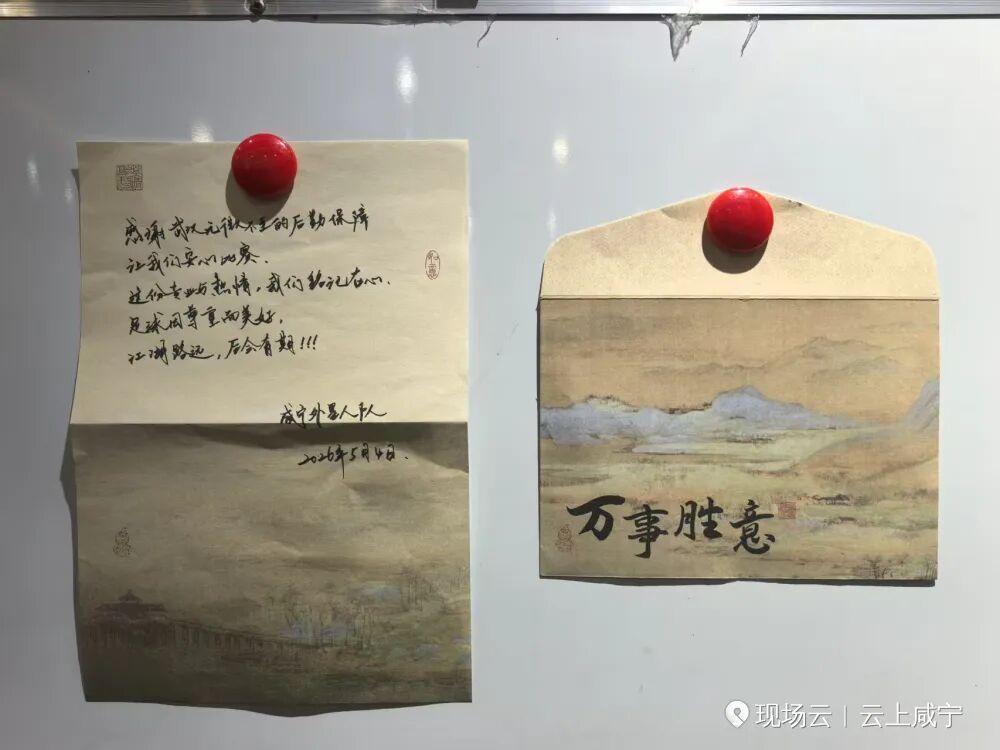 感谢武汉无微不至的后勤保障
让我们安心比赛.
这份专业与热情，我们铭记在心.
足球因尊重而美好.
江湖路远，后会有期!!!
咸宁外星人市人
2026年5月4日.
万事胜意
现场云 | 云上咸宁